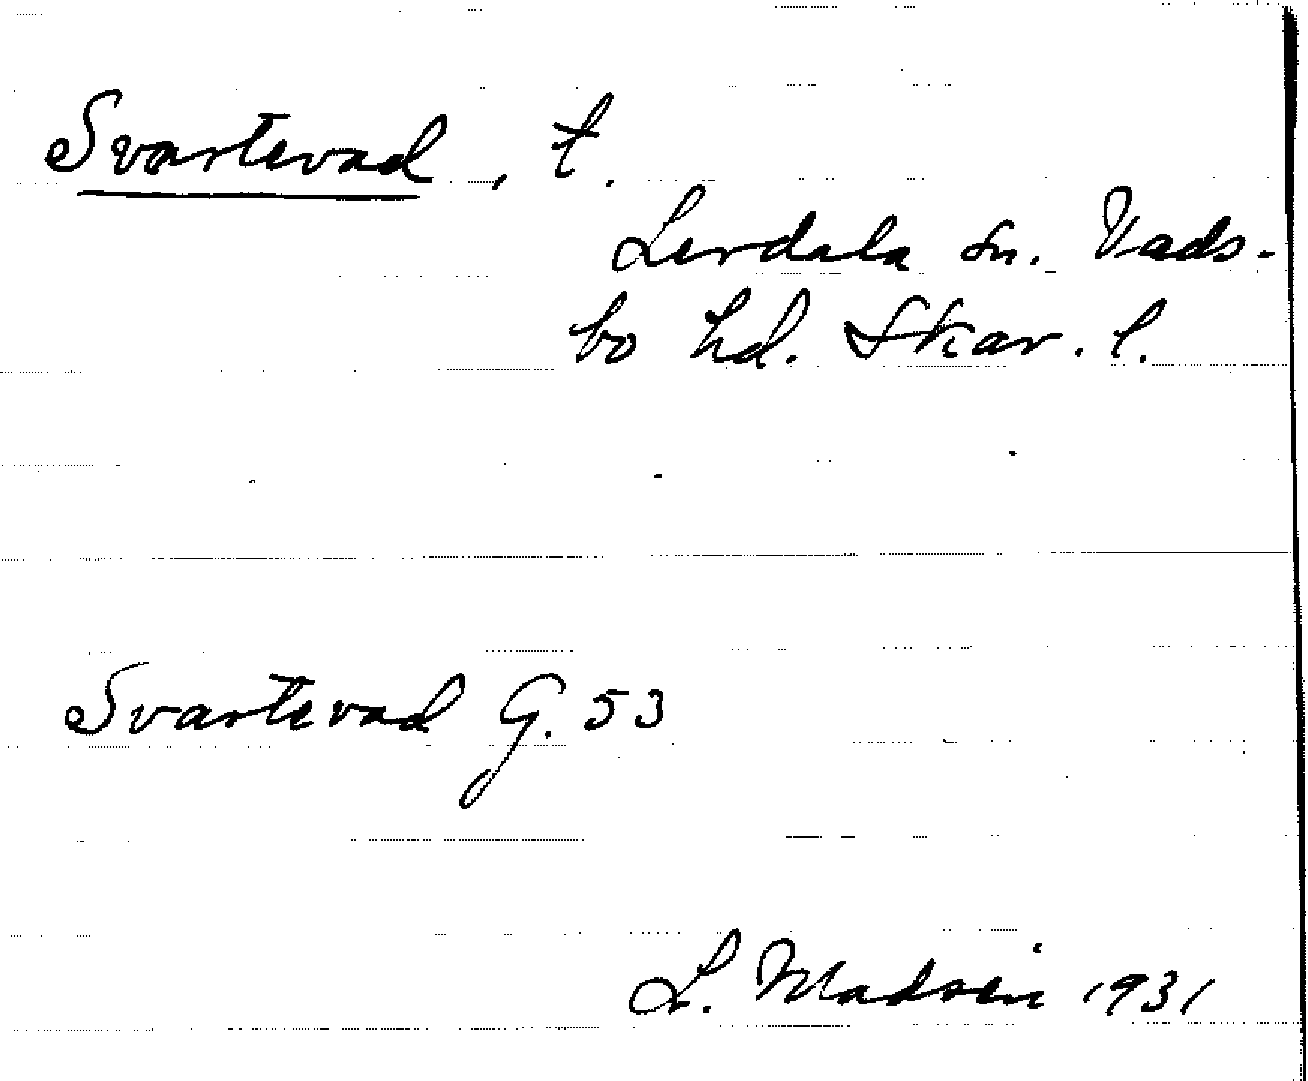 Svartevad, t.
Lerdala sn. Vads-
bo hd. Skar. l.
Svartevad G. 53
L. Madsén 1931